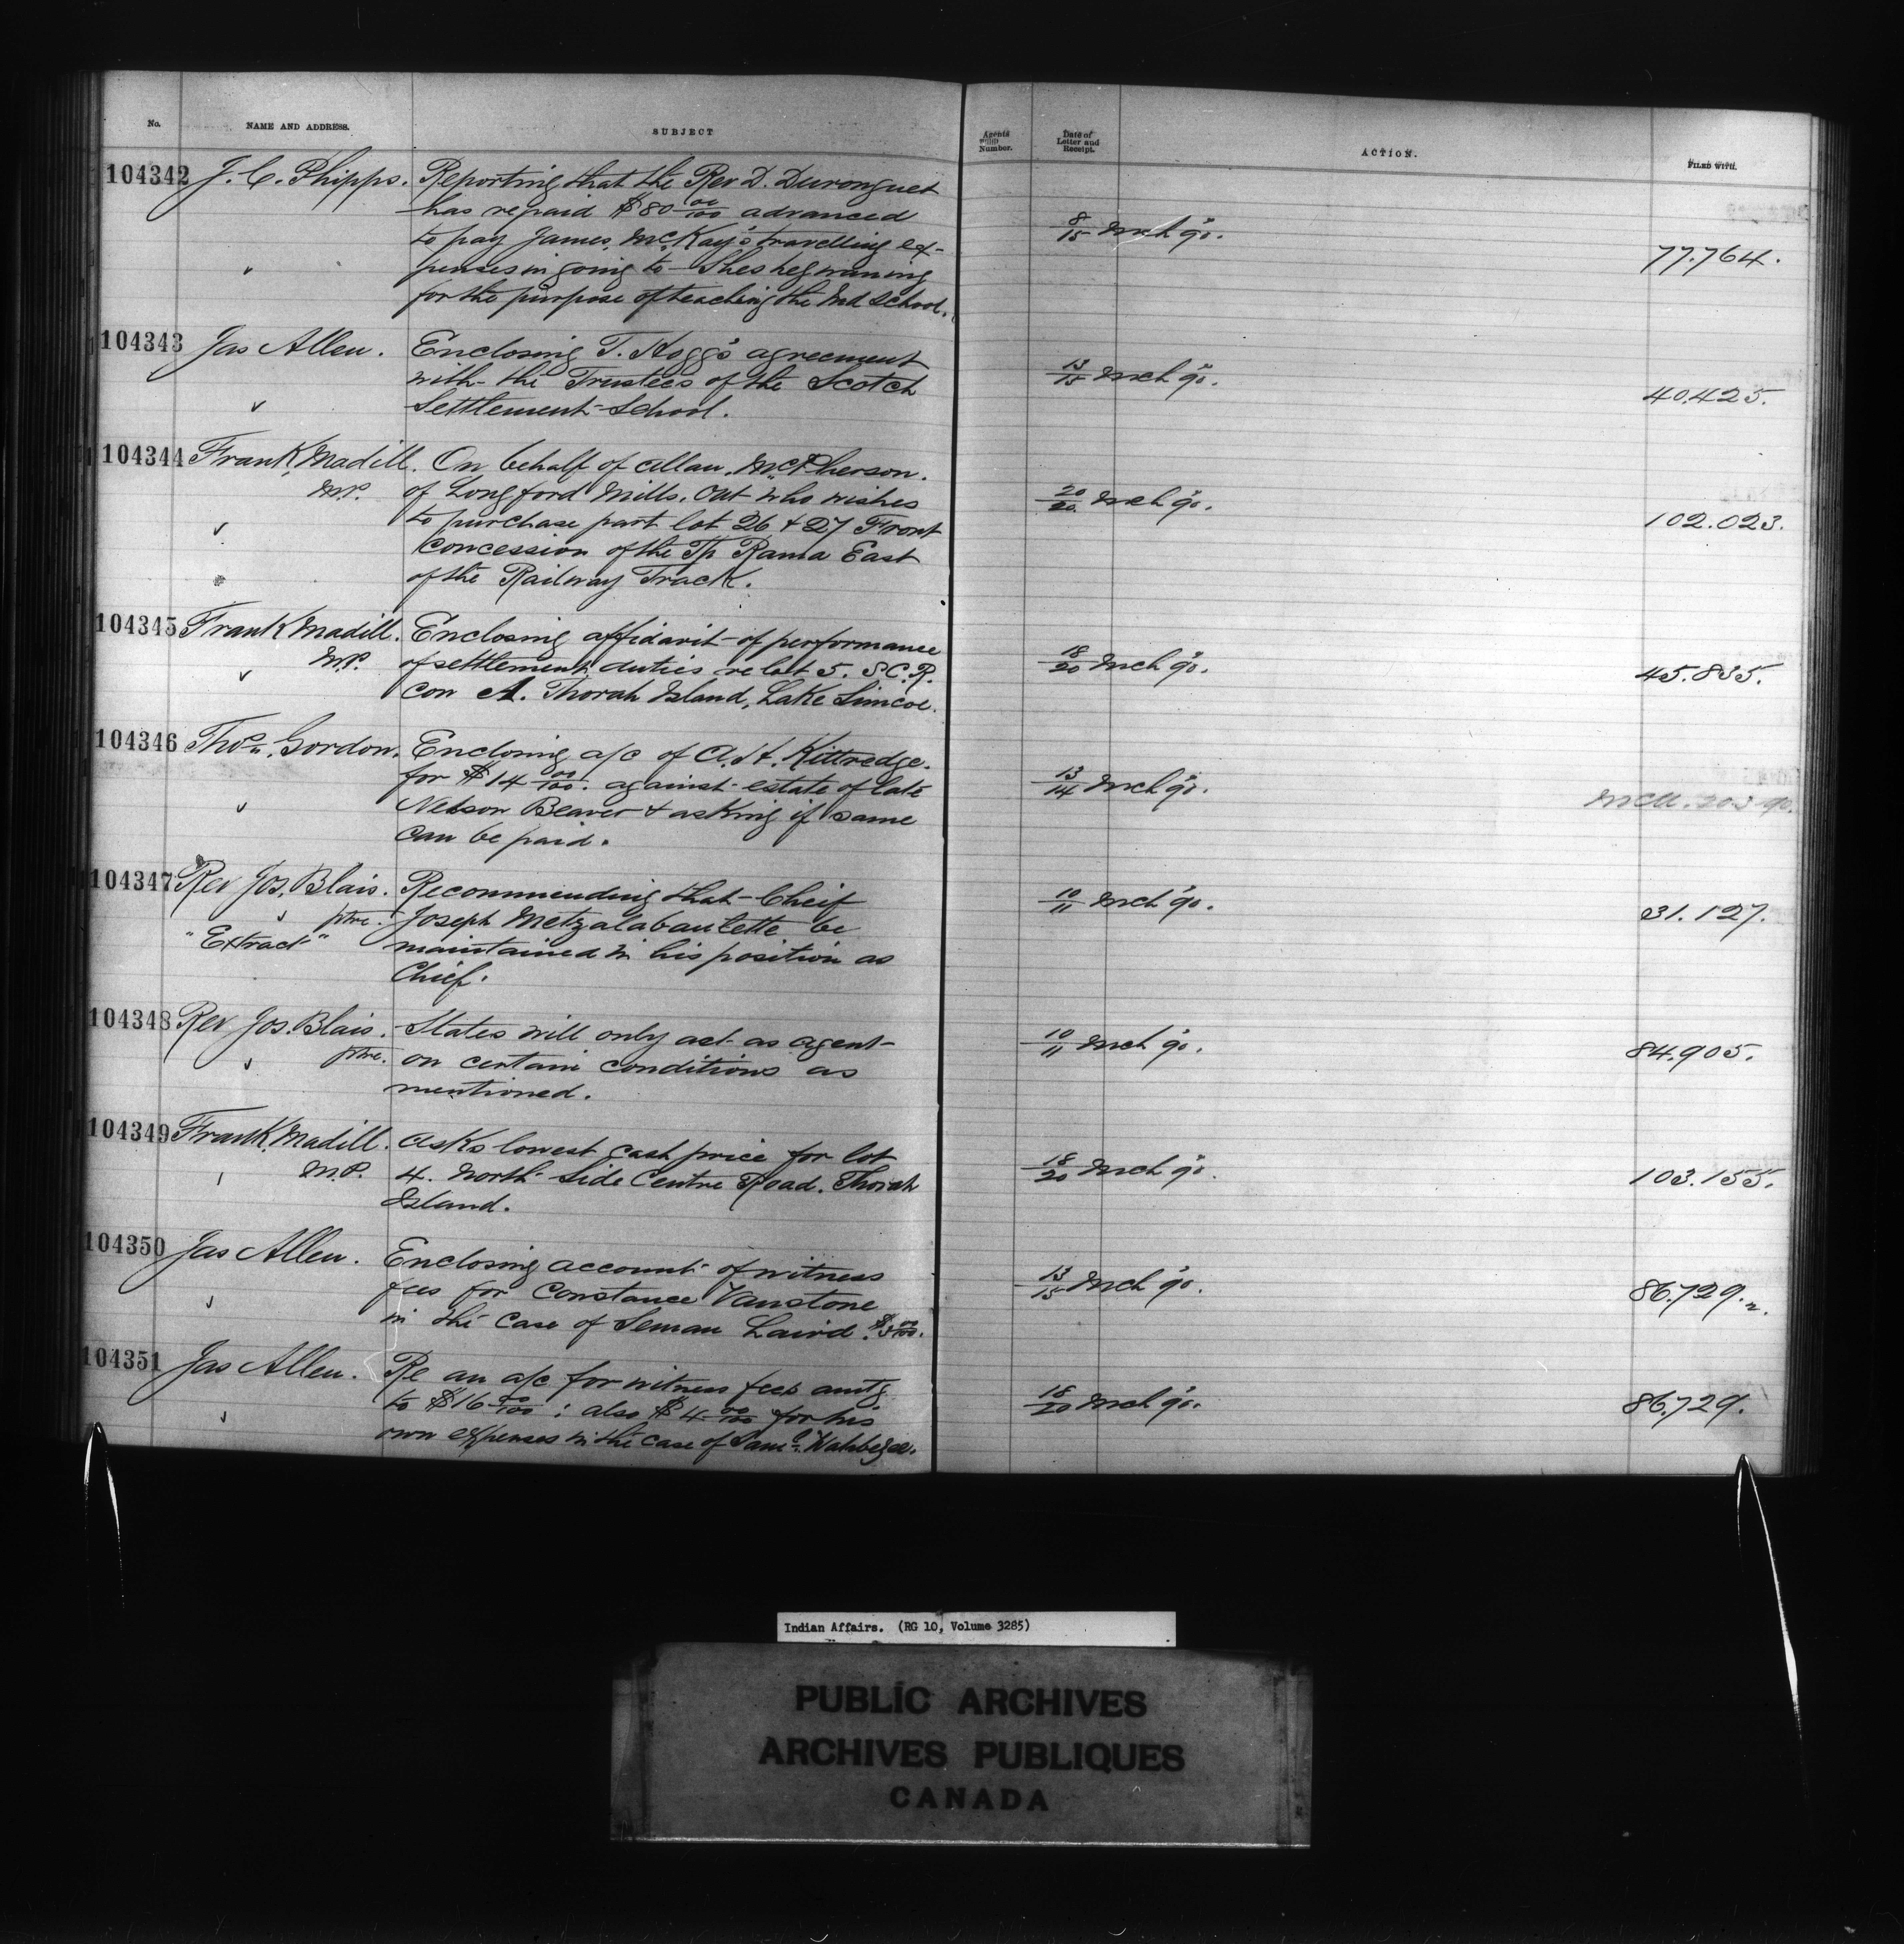 No. NAME AND ADDRESS. SUBJECT Agents Number. Date of Letter and Receipt. ACTION. FILED WITH.
104342 J. C. Phipps. Reporting that the Rev D. Duronquet
has repaid $80 00/100 advanced
to pay James McKay's travelling ex-
penses in going to Sheshegwaning
for the purpose of teaching the Ind School.
8/15 Mch 90. 77.764.
104343 Jas Allen. Enclosing T. Hogg's agreement
with the Trustees of the Scotch
Settlement School.
13/15 Mch 90. 40.425.
104344 Frank Madill. On behalf of Allan McPherson.
M.P. of Longford Mills. Ont who wishes
to purchase part lot 26 + 27 Front
Concession of the Tp Rama East
of the Railway Track.
20/20 Mch 90. 102.023.
104345 Frank Madill. Enclosing affidavit of performance
M.P. of settlement duties re lot 5. S.C.R.
Con A. Thorah Island, Lake Simcoe.
18/20 Mch 90. 45.835.
104346 Thos. Gordon. Enclosing a/c of A. H. Kittredge.
for $14 00/100. against estate of late
Nelson Beaver + asking if same
can be paid.
13/14 Mch 90.
104347 Rev Jos. Blais. Recommending that Cheif
ptre. Joseph Metzalabaulette be
"Extract" maintained in his position as
Chief.
10/11 Mch 90. 31.127.
104348 Rev Jos. Blais. States will only act as agent
ptre. on certain conditions as
mentioned.
10/11 Mch 90. 84.905.
104349 Frank Madill. Asks lowest cash price for lot
M.P. 4. North Side Centre Road. Thorah
Island.
18/20 Mch 90. 103.155.
104350 Jas Allen. Enclosing account of witness
fees for Constance Vanstone
in the case of Seman Laird.
13/15 Mch 90. 86.729.
104351 Jas Allen. Re an a/c for witness fees amtg
to $16 00/100 : also $4 00/100 for his
own expenses in the case of Saml.
18/20 Mch 90. 86.729.
Indian Affairs. (RG 10, Volume 3285)
PUBLIC ARCHIVES
ARCHIVES PUBLIQUES
CANADA